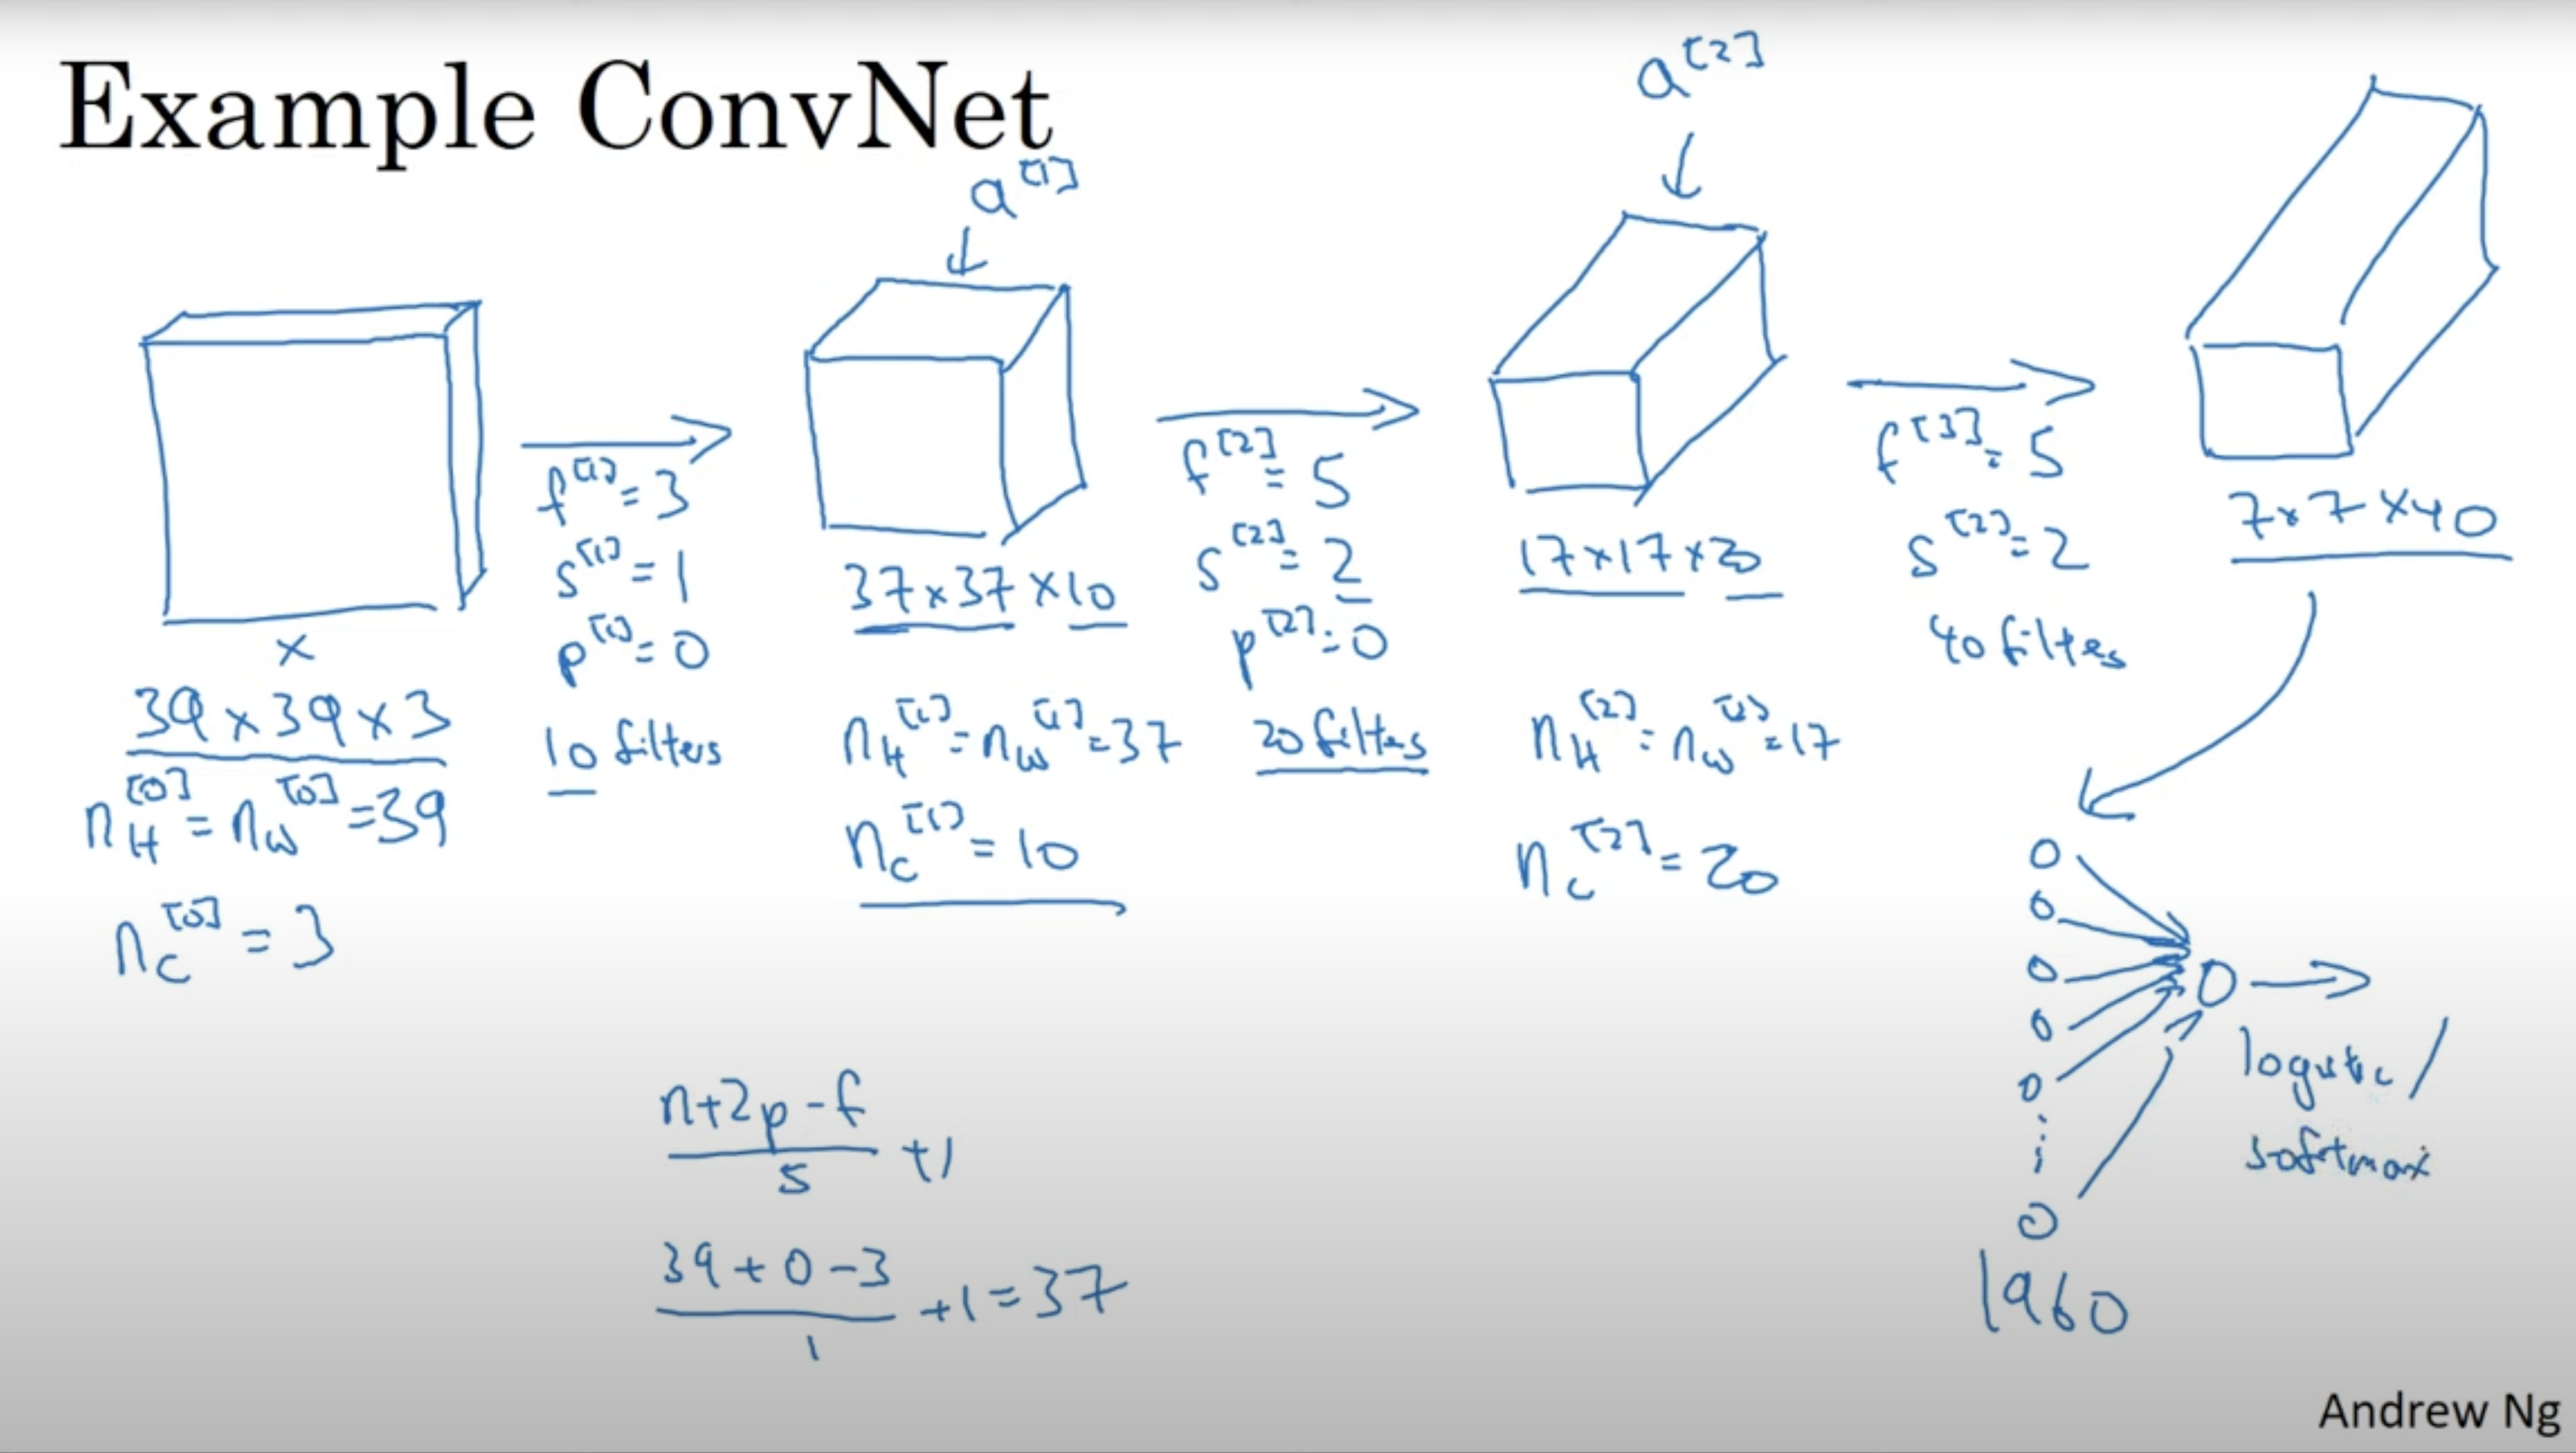 Example ConvNet
a^[1]
a^[2]
x
39 x 39 x 3
n_H^[0] = n_W^[0] = 39
n_C^[0] = 3
f^[1] = 3
s^[1] = 1
p^[1] = 0
10 filters
37 x 37 x 10
n_H^[1] = n_W^[1] = 37
n_C^[1] = 10
f^[2] = 5
s^[2] = 2
p^[2] = 0
20 filters
17 x 17 x 20
n_H^[2] = n_W^[2] = 17
n_C^[2] = 20
f^[3] = 5
s^[2] = 2
40 filters
7 x 7 x 40
n+2p-f
s
+1
39 + 0 - 3
1
+1 = 37
logistic /
softmax
1960
Andrew Ng